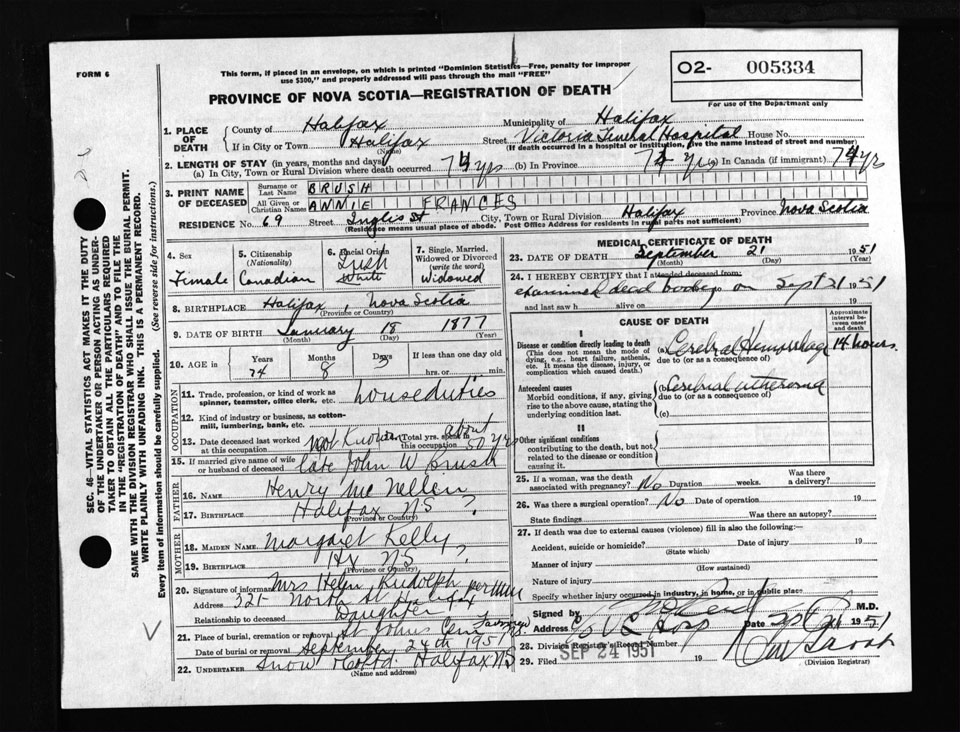 FORM 6
This form, if placed in an envelope, on which is printed "Dominion Statistics—Free, penalty for improper
use $300," and properly addressed will pass through the mail "FREE"
02- 005334
For use of the Department only
PROVINCE OF NOVA SCOTIA—REGISTRATION OF DEATH
SEC. 46—VITAL STATISTICS ACT MAKES IT THE DUTY
OF THE UNDERTAKER OR PERSON ACTING AS UNDER-
TAKER TO OBTAIN ALL THE PARTICULARS REQUIRED
IN THE "REGISTRATION OF DEATH" AND TO FILE THE
SAME WITH THE DIVISION REGISTRAR WHO SHALL ISSUE THE BURIAL PERMIT.
WRITE PLAINLY WITH UNFADING INK. THIS IS A PERMANENT RECORD.
Every item of information should be carefully supplied. (See reverse side for instructions.)
1. PLACE OF DEATH County of Halifax Municipality of Halifax
If in City or Town Halifax Street Victoria General Hospital House No.
(Name) (If death occurred in a hospital or institution, give the name instead of street and number)
2. LENGTH OF STAY (in years, months and days)
(a) In City, Town or Rural Division where death occurred 74 yrs (b) In Province 74 yrs (c) In Canada (if immigrant) 74 yrs
3. PRINT NAME OF DECEASED Surname or Last Name BRUSH
All Given or Christian Names ANNIE FRANCES
RESIDENCE No. 69 Street Inglis St City, Town or Rural Division Halifax Province Nova Scotia
(Residence means usual place of abode. Post Office Address for residents in rural parts not sufficient)
4. Sex Female
5. Citizenship (Nationality) Canadian
6. Racial Origin Irish White
7. Single, Married, Widowed or Divorced (write the word) Widowed
8. BIRTHPLACE Halifax, Nova Scotia
(Province or Country)
9. DATE OF BIRTH January 18 1877
(Month) (Day) (Year)
10. AGE in Years 74 Months 8 Days 3 If less than one day old
hrs. or min.
OCCUPATION
11. Trade, profession, or kind of work as spinner, teamster, office clerk, etc. houseduties
12. Kind of industry or business, as cotton-mill, lumbering, bank, etc.
13. Date deceased last worked at this occupation not Known Total yrs. spent in this occupation about 50 yrs
15. If married give name of wife or husband of deceased late John W Brush
FATHER
16. Name Henry Mc Nellen
17. Birthplace Halifax NS ?
(Province or Country)
MOTHER
18. Maiden Name Margaret Kelly
19. Birthplace Hx NS ?
(Province or Country)
20. Signature of informant Mrs Helen Rudolph per
Address 321- North St Halifax
Relationship to deceased Daughter
21. Place of burial, cremation or removal St Johns Cem
Date of burial or removal September 24th 1951
22. UNDERTAKER Snow & Co Ltd. Halifax NS
(Name and address)
MEDICAL CERTIFICATE OF DEATH
23. DATE OF DEATH September 21 1951
(Month) (Day) (Year)
24. I HEREBY CERTIFY that I attended deceased from:
examined dead body on Sept 21 1951
and last saw h alive on 19
CAUSE OF DEATH
Approximate interval between onset and death
I
Disease or condition directly leading to death
(This does not mean the mode of dying, e.g., heart failure, asthenia, etc. It means the disease, injury, or complication which caused death.)
(a) Cerebral Hemorrhage 14 hours
due to (or as a consequence of)
Antecedent causes
Morbid conditions, if any, giving rise to the above cause, stating the underlying condition last.
(b) Cerebral atheroma
due to (or as a consequence of)
(c)
II
Other significant conditions
contributing to the death, but not related to the disease or condition causing it.
25. If a woman, was the death associated with pregnancy? No Duration weeks. Was there a delivery?
26. Was there a surgical operation? No Date of operation 19
State findings Was there an autopsy?
27. If death was due to external causes (violence) fill in also the following:—
Accident, suicide or homicide? Date of injury 19
(State which)
Manner of injury
(How sustained)
Nature of injury
Specify whether injury occurred in industry, in home, or in public place
Signed by M.D.
Address Date 1951
28. Division Registrar's Record Number
29. Filed SEP 24 1951 19
(Division Registrar)